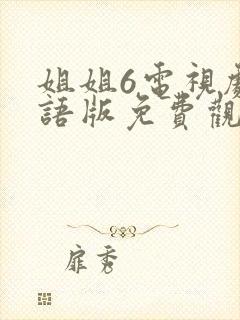 姐姐6電視劇
語版免費觀
扉秀